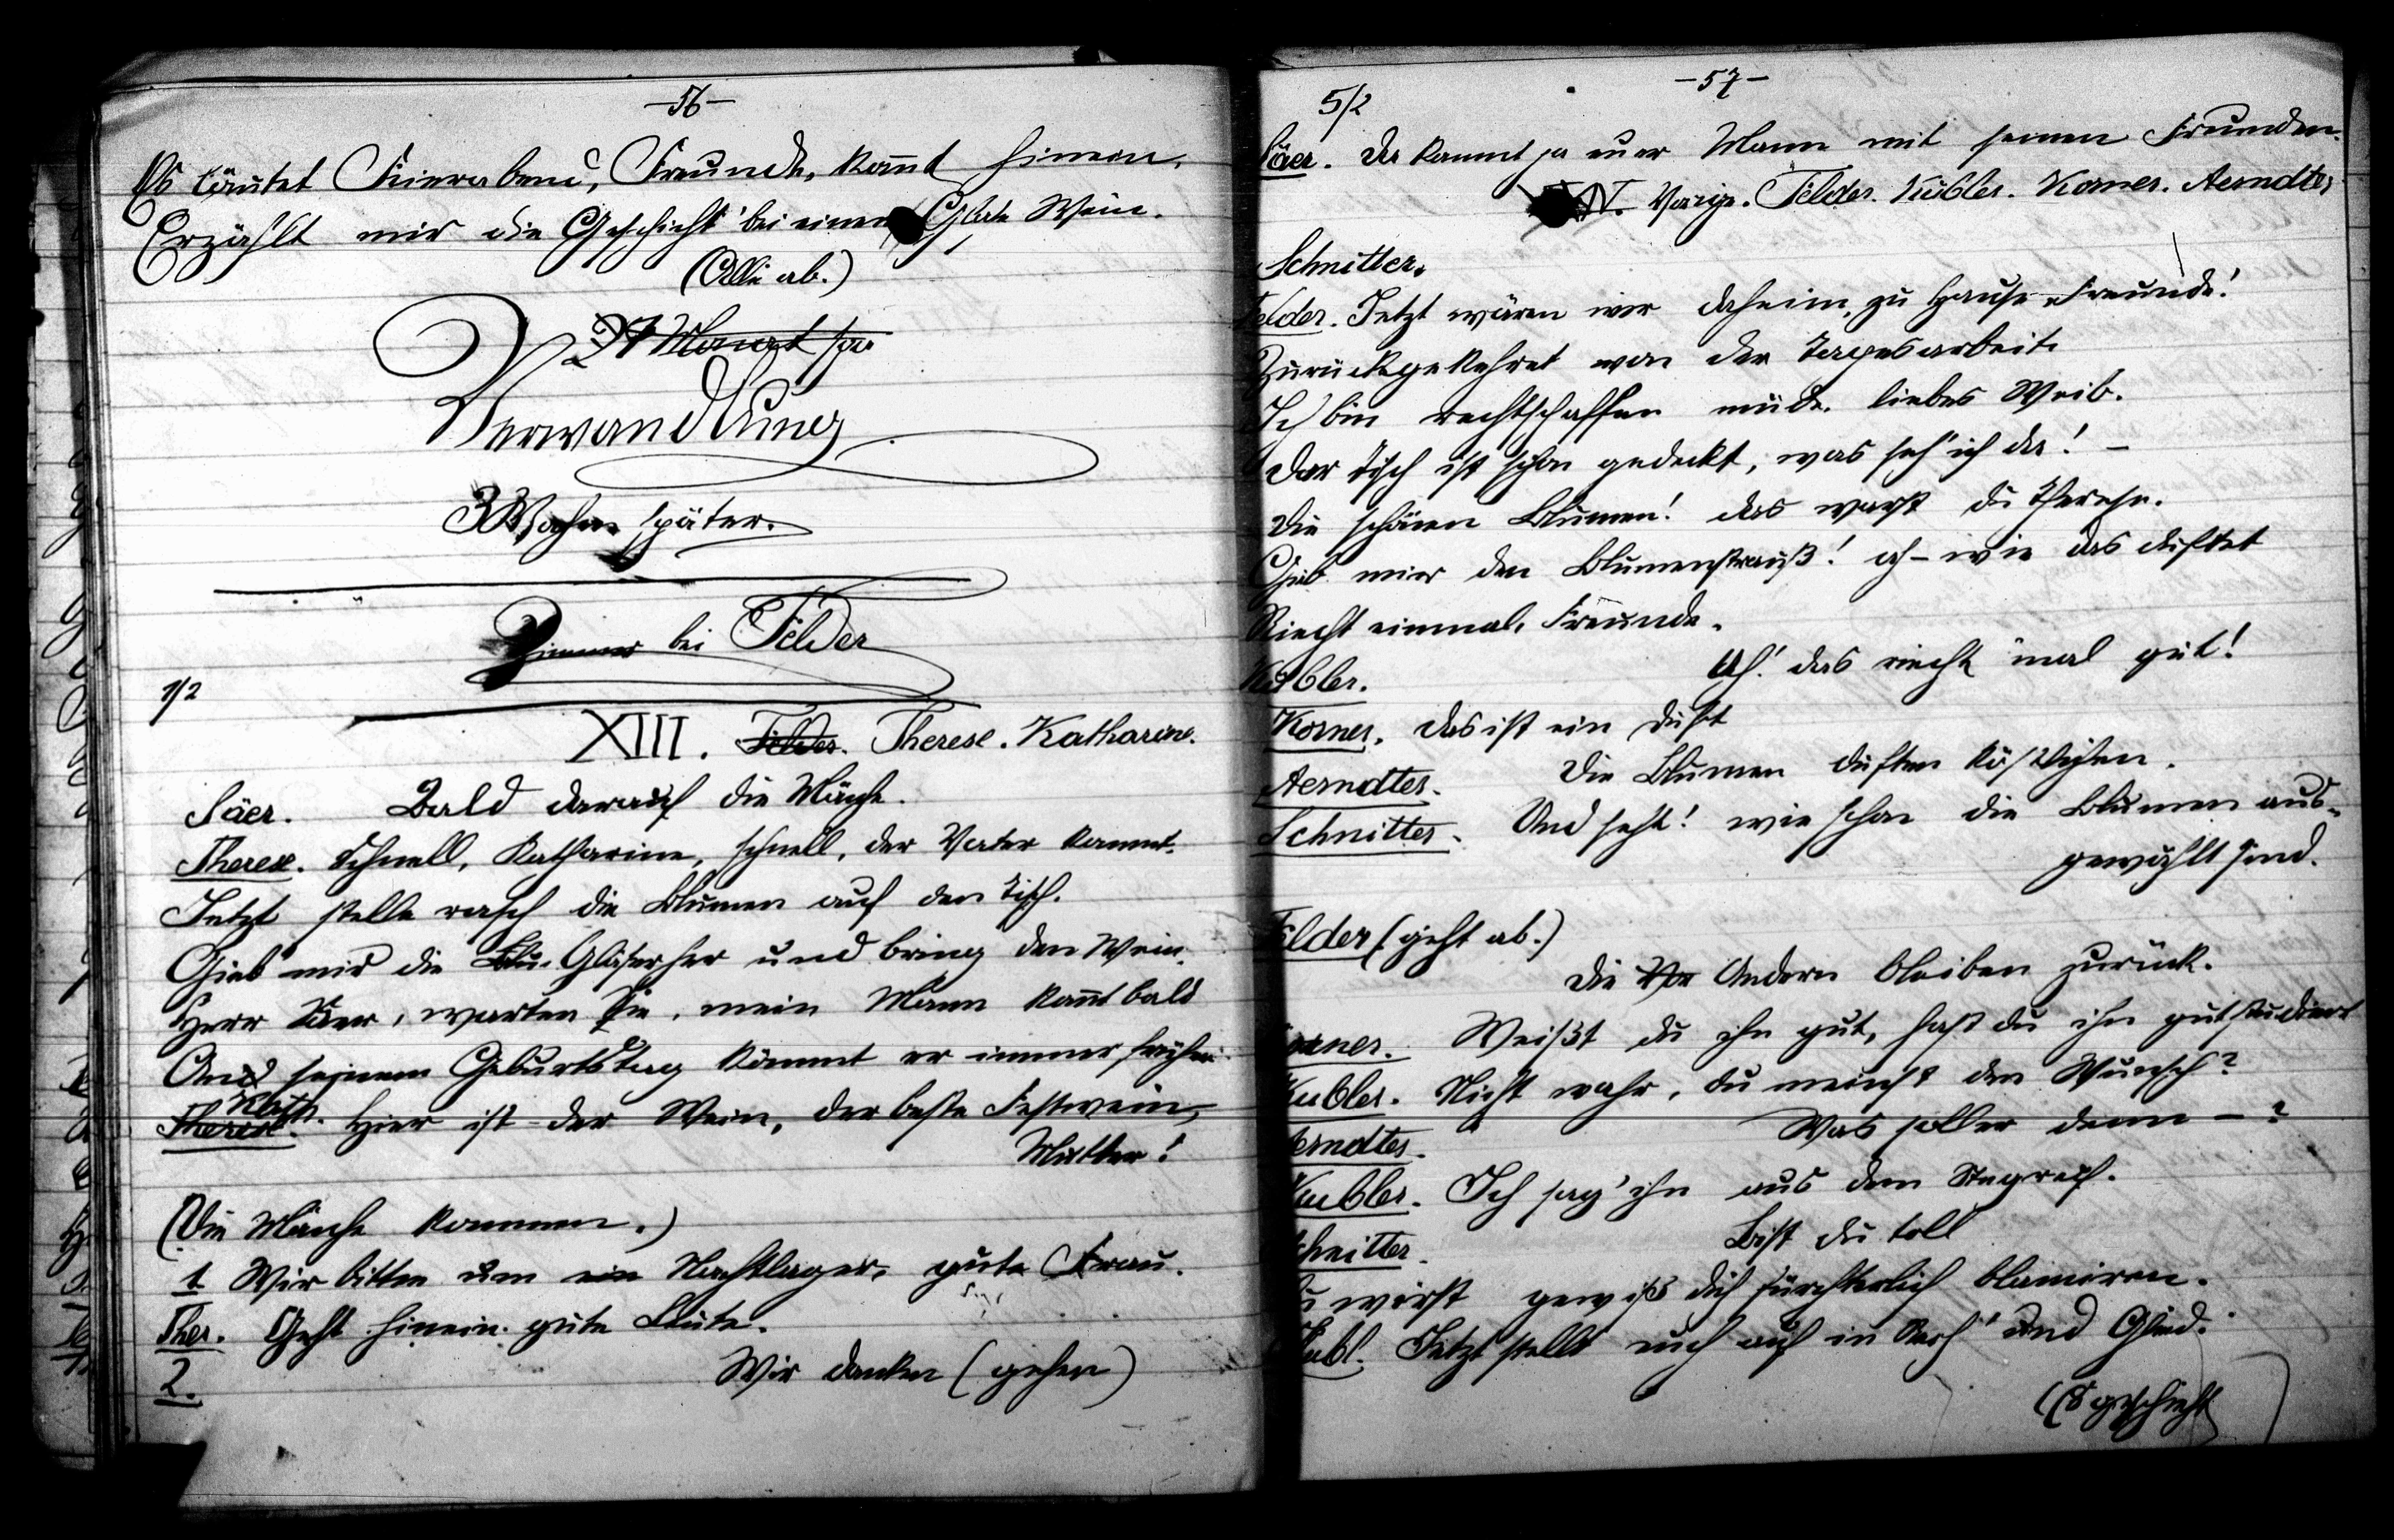 -56-
Es läutet Feierabend, Freunde, kom̄t hinein.
Erzählt mir die Geschicht' bei einem Glase Wein.
(Alle ab.)
Monat spä
Verwandlung
3 Wochen später.
Zimmer bei Felder
1/2
XIII. Felder. Therese. Katharine.
Säer. Bald darauf die Mönche.
Therese. Schnell, Katharine, schnell, der Vater kommt.
Jetzt stelle rasch die Blumen auf den Tisch.
Gieb mir die Blu. Gläser her und bring den Wein.
Herr Säer, warten Sie, mein Mann kom̄t bald
An seinem Geburtstag kommt er immer früher.
Kath.
Therese. Hier ist der Wein, der beste Festwein,
Mutter!
(Die Mönche kommen.)
1 Wir bitten um ein Nachtlager, gute Frau.
Ther. Geht hinein gute Leute.
2. Wir danken (gehen)
-57-
5/2
Säer. Da kommt ja euer Mann mit seinen Freunden.
Vorige. Felder. Kübler. Korner. Aerndter,
Schnitter.
Felder. Jetzt wären wir daheim, zu Hause Freunde!
Zurückgekehret von der Tagesarbeit.
Ich bin rechtschaffen müde, liebes Weib.
Der Tisch ist schon gedeckt, was seh' ich da! -
Die schönen Blumen! das warst du Therese.
Gieb mir den Blumenstrauß! ah - wie das duftet
Riecht einmal, Freunde.
Kübler. Ah! das riecht 'mal gut!
Korner. Das ist ein Duft
Aerndter. Die Blumen duften köstlichen.
Schnitter. Und seht! wie schön die Blumen aus-
gewählt sind.
Felder (geht ab.)
Die Vor Andern bleiben zurück.
Korner. Weißt du ihn gut, hast du ihn gut studiert
Kübler. Nicht wahr, du meinst den Wunsch?
Aerndter. Was soll er denn - ?
Kübler. Ich sag' ihn aus dem Stegreif.
Schnitter. Bist du toll
Du wirst gewiß dich fürchterlich blamiren.
Kübl. Jetzt stellt euch auf in Reih' und Glied.
(Es geschieht